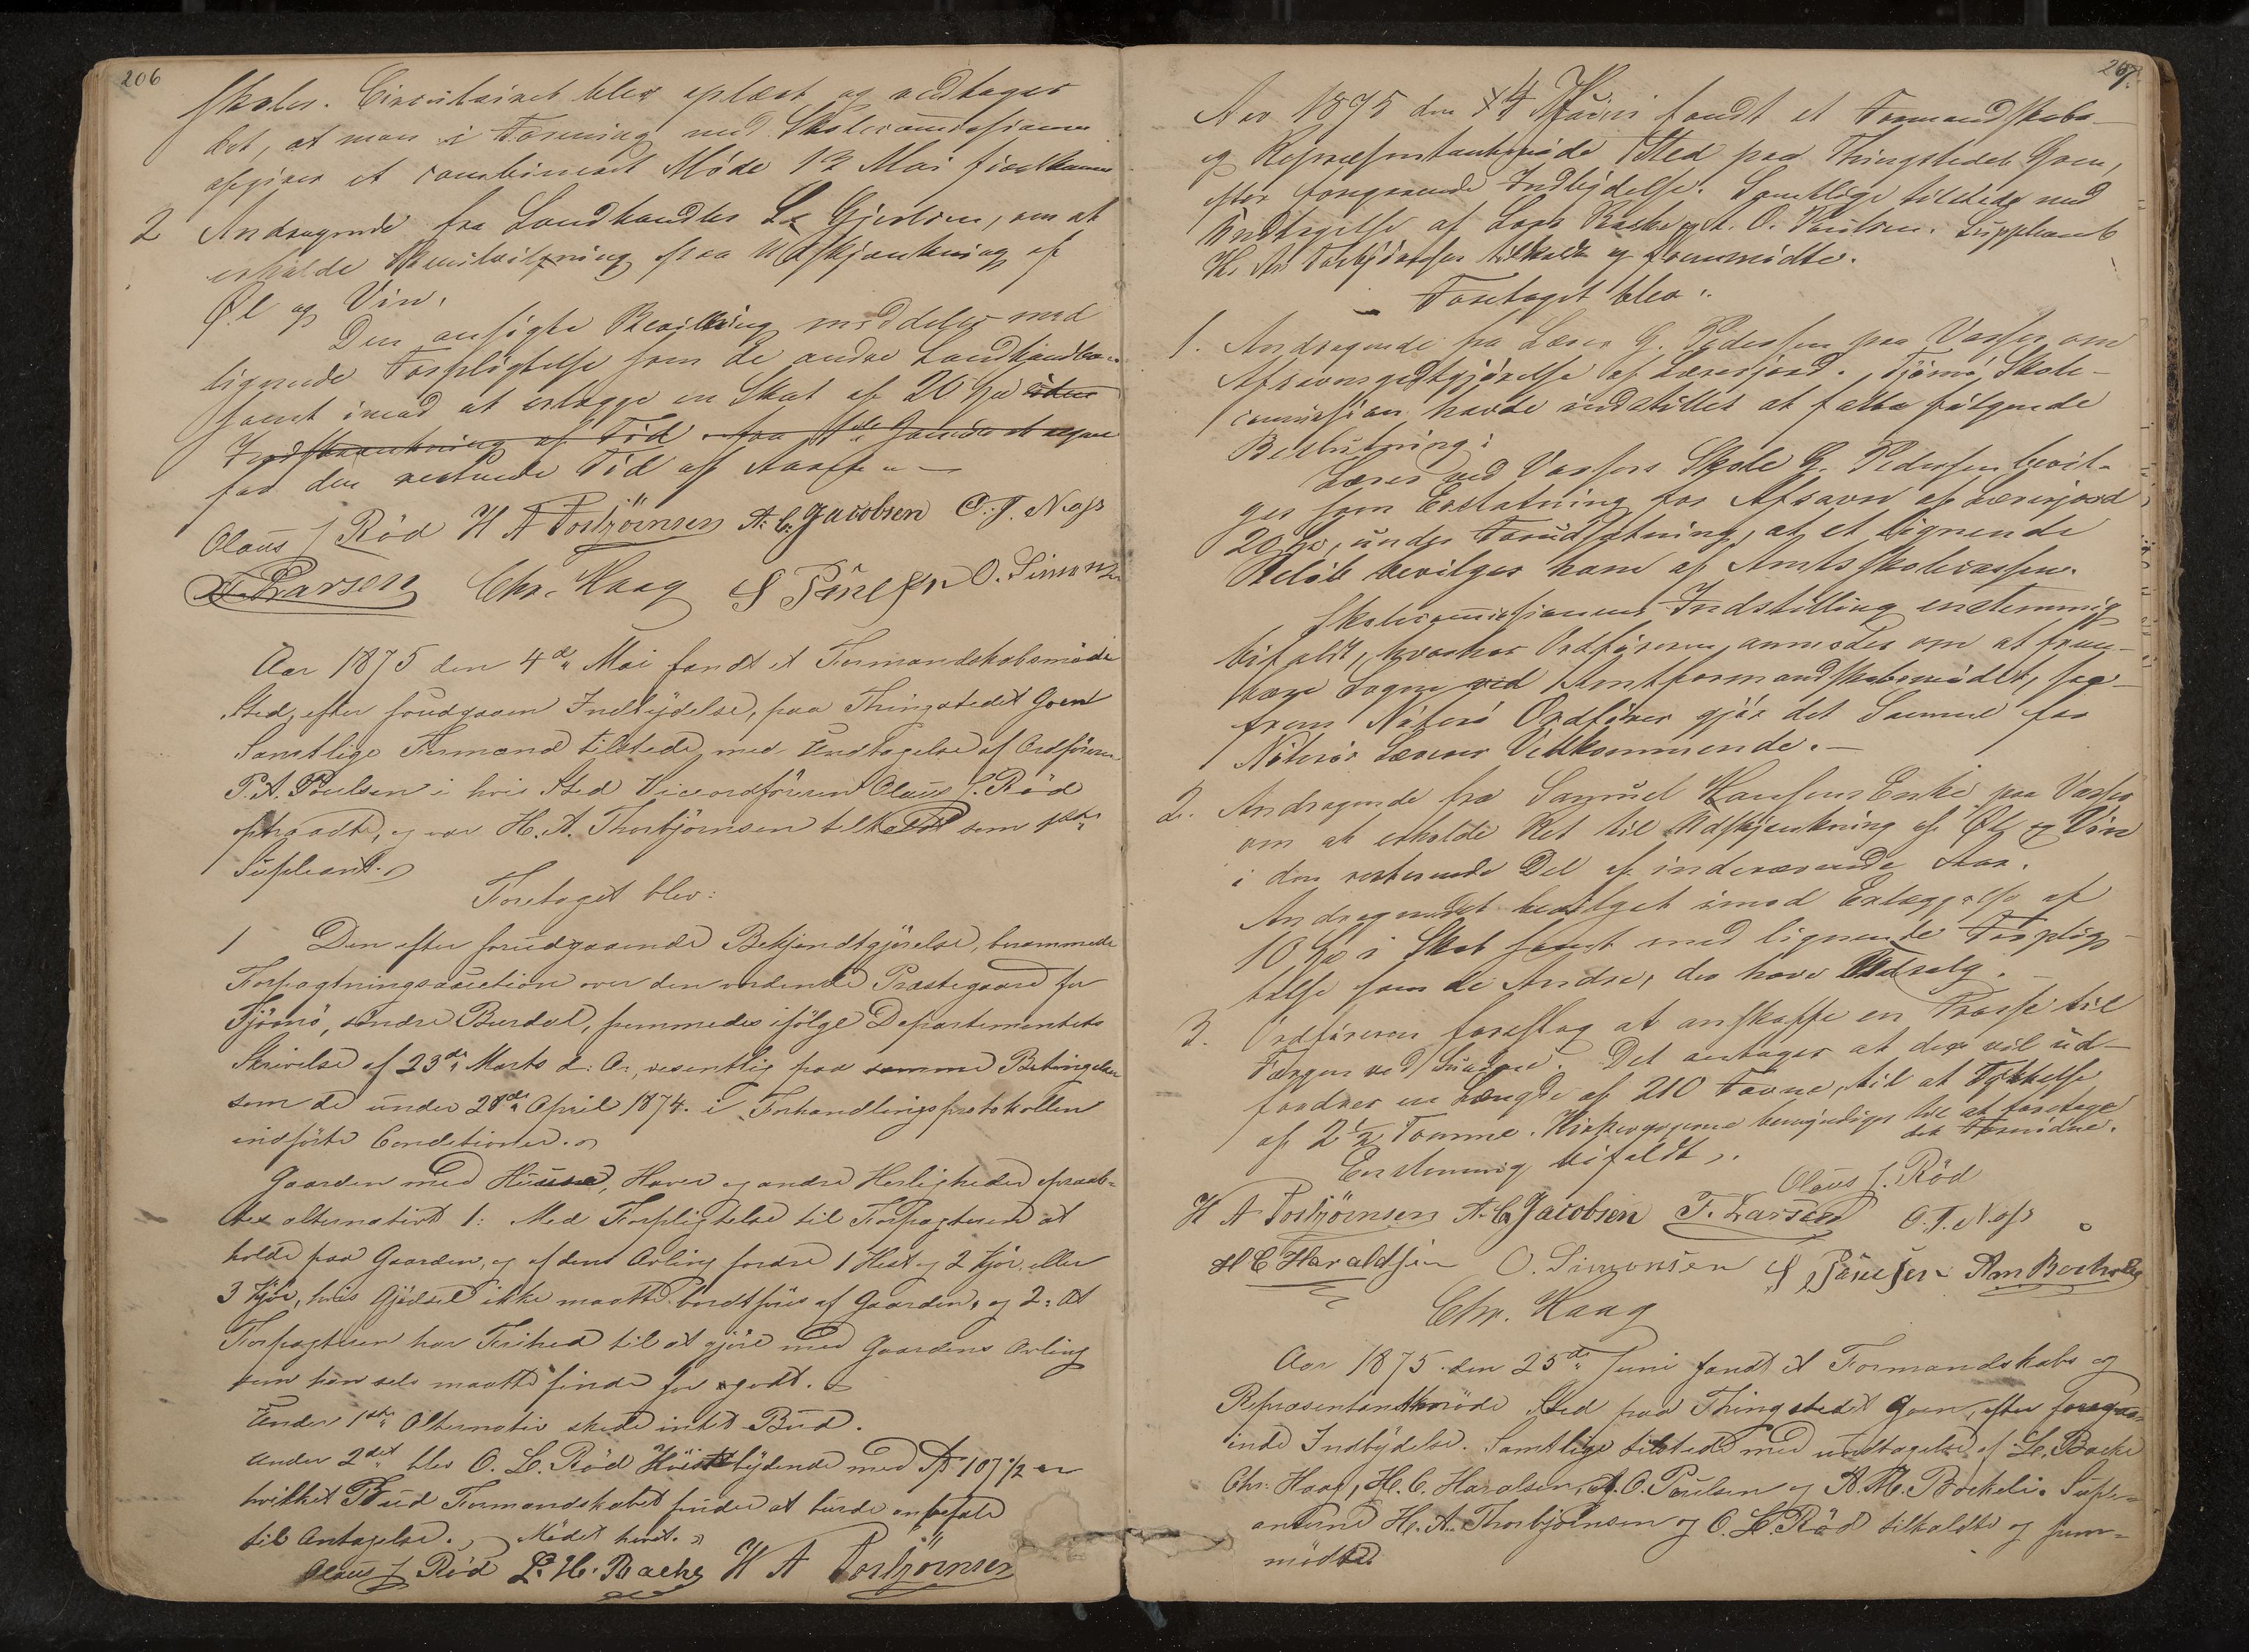 206
Skoler. Circulairet blev oplæst og vedtoges
det, at man i Forening med Skolecommissionen
afgiver et combineret Møde 12 Mai
2 Andragende fra Landhandler L. Gjertsen, om at
erholde Bevilling paa Udskjænkning af
Øl og Vin.
Den ansøgte Bevilling meddeles med
lignende Forpligtelse som de andre Landhandlere
samt imod at erlægge en Skat af 20
Indskrænkning af Tid
for den resterende Tid af Aaret.
Olaus J Röd H A Torbjörnsen A. C. Jacobsen O. T. Næss
F. Larsen Chr. Haag S Poulsen O. Simonsen
Aar 1875 den 4de Mai fandt et Formandskabsmøde
Sted, efter forudgaaen Indbydelse, paa Thingstedet Goen
Samtlige Formænd tilstede med Undtagelse af Ordföreren
P. A. Poulsen i hvis Sted Viceordföreren Olaus J. Röd
optraadte, og var H. A. Thorbjörnsen tilkaldt som 1ste
Supleant.
Foretaget blev:
1 Den efter forudgaaende Bekjendtgjörelse, berammede
Forpagtningsauction over den vordende Præstegaard for
Tjömö, söndre Burdal, fremmedes ifölge Departementets
Skrivelse af 23de Marts d. A., væsentlig paa samme Betingelser
som de under 28de April 1874 i Forhandlingsprotokollen
indförte Conditioner.
Gaarden med Huse, Haver og andre Herligheder opraab-
tes alternativt 1: Med Forpligtelse til Forpagteren at
holde paa Gaarden, og af dens Avling fordre 1 Hest og 2 Kjör, eller
3 Kjör, hvis Gjödsel ikke maatte bortföres af Gaarden, og 2: At
Forpagteren har Frihed til at gjöre med Gaardens Avling
som han selv maatte finde for godt.
Under 1ste Alternativ skede intet Bud.
Under 2det blev O. L. Röd Höistbydende med Sp 107 1/2
hvilket Bud Formandskabet finder at burde anbefale
til Antagelse. Mödet hævet.
Olaus J Röd L. H. Backe H A Torbjörnsen
207.
Aar 1875 den 4 Juni fandt et Formandskabs-
og Repræsentantmøde Sted paa Thingstedet Goen,
efter foregaaende Indbydelse. Samtlige tilstede med
Undtagelse af Lars Backe og A. O. Poulsen. Suppleant
H. A. Torbjörnsen tilkaldt og fremmødte.
Foretaget blev:
1. Andragende fra Lærer G. Pedersen paa Vasser om
Afsavnsgodtgjörelse af Lærerjord. Tjömö Skole-
commission havde indstillet at fatte følgende
Beslutning:
Lærer ved Vassers Skole G. Pedersen bevil-
ges som Erstatning for Afsavn af Lærerjord
20, under Forudsætning, at et lignende
Beløb bevilges ham af Amtsskolecassen.
Skolecommissionens Indstilling enstemmig
bifaldt, hvorhos Ordføreren anmodes om at frem-
bære Sagen ved Amtformandskabsmødet, saa-
fremt Nøterö Ordfører gjør det Samme for
Nøterös Lærers Vedkommende.
2. Andragende fra Samuel Hansens Enke paa Vasser
om at erholde Ret til Udskjænkning af Øl og Vin
i den resterende Del af indeværende Aar.
Andragendet bevilget imod Erlæggelse af
10 i Skat samt med lignende Forplig-
telse som de Andre, der have Udsalg.
3. Ordføreren foreslog at anskaffe en Trosse til
Færgen ved. Det antages at der vil ud-
fordres en Længde af 210 Favne, til at Tykkelse
af 2 1/2 Tomme. bemyndiges til at foretage
det Fornødne.
Enstemmig bifaldt.
Olaus J. Röd
H A Torbjörnsen A. C. Jacobsen F. Larsen O. T. Næss
H C Haraldsen O. Simonsen S Poulsen
Chr. Haag
Aar 1875 den 25de Juni fandt et Formandskabs og
Repræsentantmöde Sted paa Thingstedet Goen, efter foregaa-
ende Indbydelse. Samtlige tilstede med undtagelse af L. Backe
Chr. Haag, H. C. Haralsen, A. O. Poulsen og A. M. Bockeli. Suple-
anterne H. A. Thorbjörnsen og O. L. Röd tilkaldte og frem-
mödte.